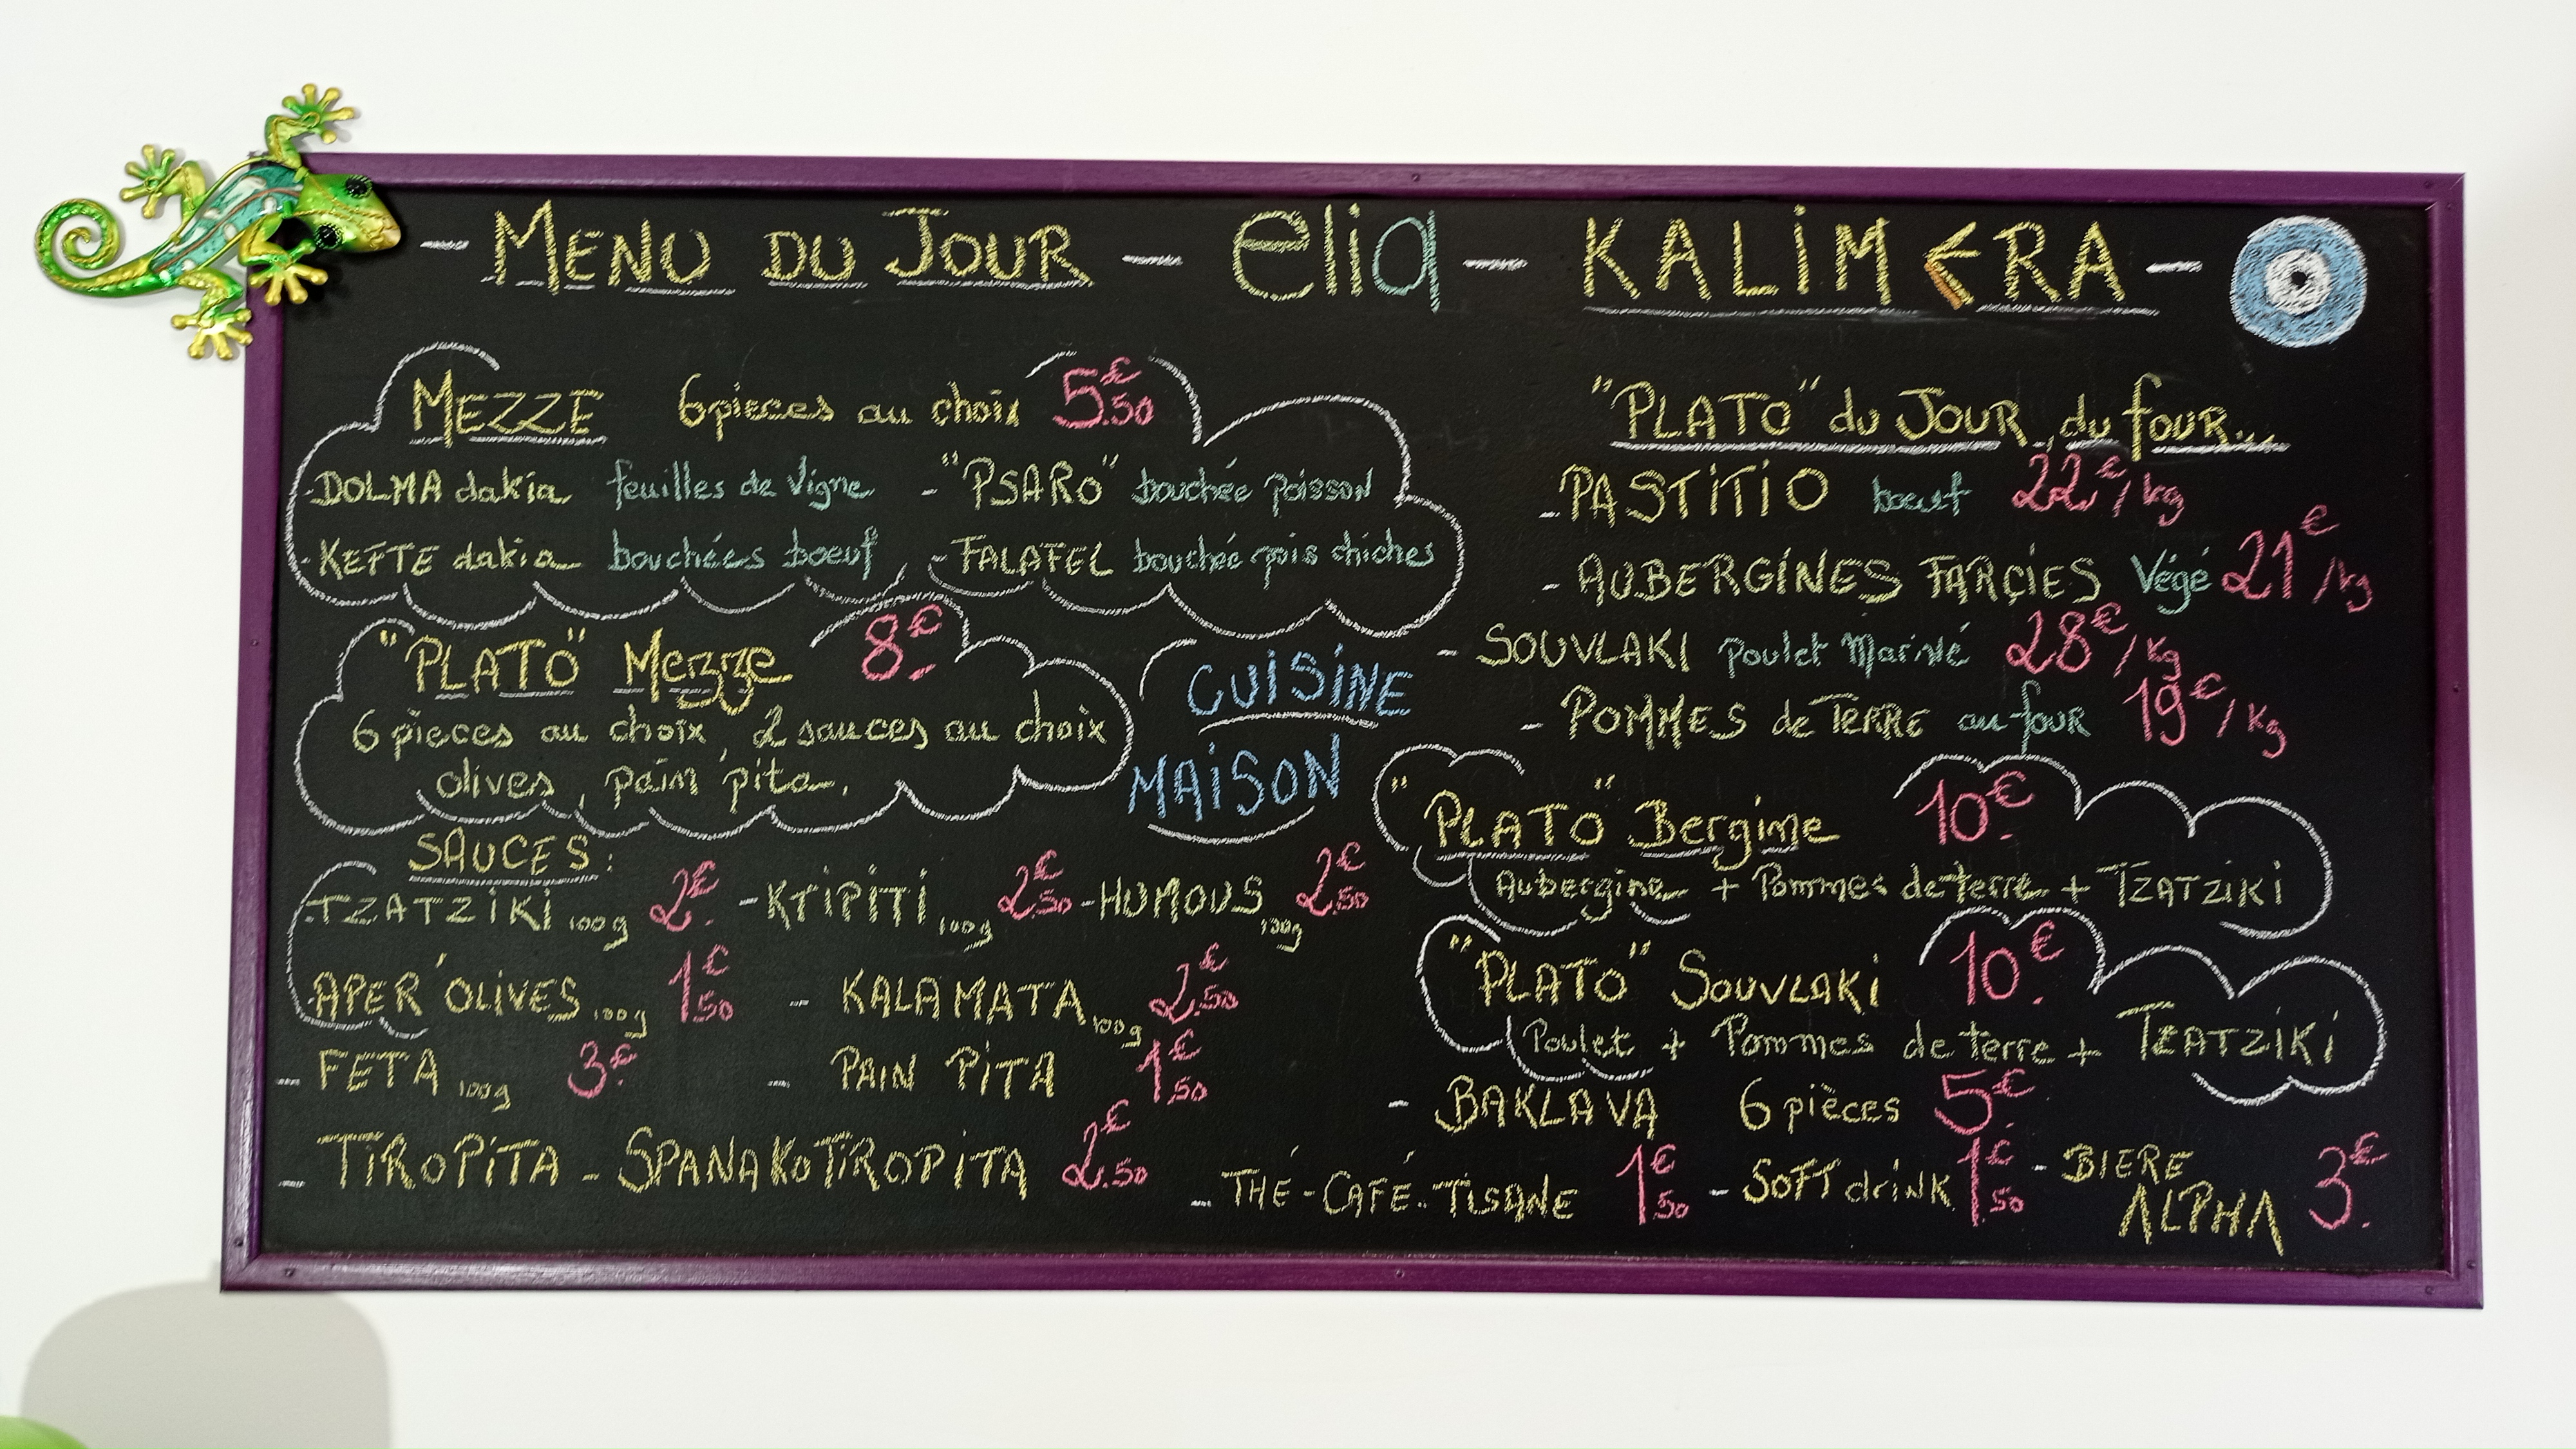 - MENU DU JOUR - elia - KALIMERA -
MEZZE 6 pieces au choix 5.50€
- DOLMA dakia feuilles de vigne - "PSARO" bouchée poisson
- KEFTE dakia bouchées boeuf - FALAFEL bouchée pois chiches
"PLATO" Mezze 8€.-
6 pieces au choix, 2 sauces au choix
olives, pain pita.
CUISINE
MAISON
SAUCES:
- TZATZIKI 100g 2€. - KTIPITI 100g 2€.50 - HUMOUS 100g 2€.50
- APER'OLIVES 100g 1€50 - KALAMATA 100g 2€.50
- FETA 100g 3€. - PAIN PITA 1€.50
- TIROPITA - SPANAKOTIROPITA 2€.50
"PLATO" du JOUR, du four...
- PASTITIO boeuf 22€/kg
- AUBERGINES FARCIES Végé 21€/kg
- SOUVLAKI poulet Mariné 28€/kg
- POMMES de TERRE au four 19€/kg
"PLATO" Bergine 10€.-
Aubergine + Pommes de terre + TZATZIKI
"PLATO" Souvlaki 10€.
Poulet + Pommes de terre + TZATZIKI
- BAKLAVA 6 pièces 5€
- THÉ - CAFÉ - TISANE 1€.50 - SOFT drink 1€.50 - BIERE
ALPHA 3€.